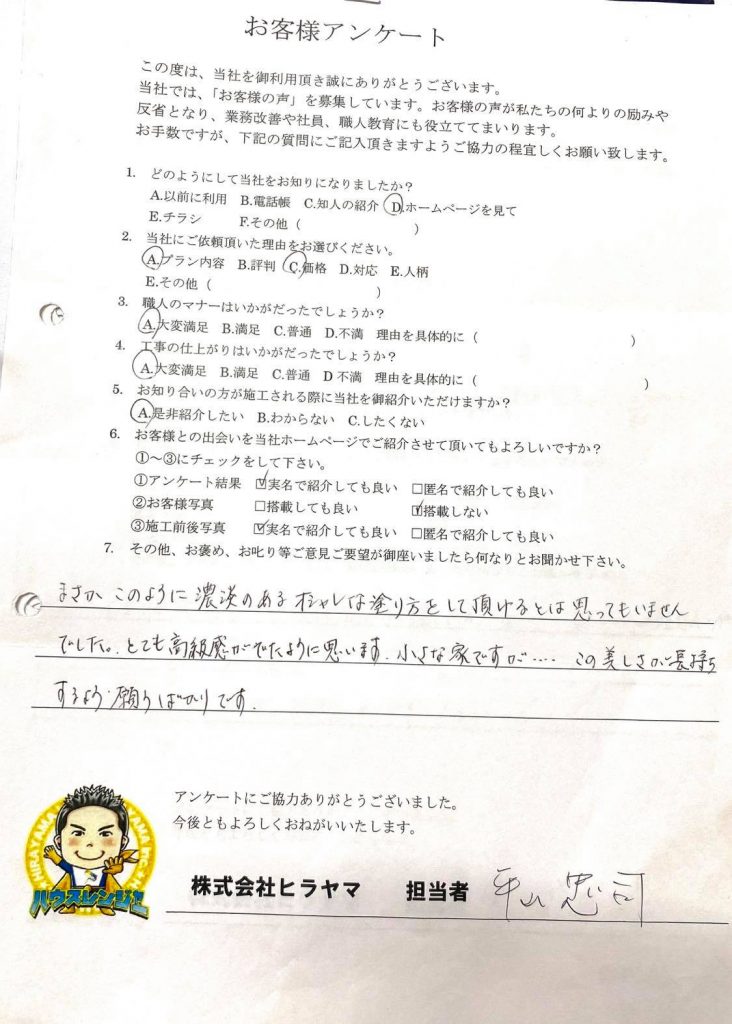 お客様アンケート
この度は、当社を御利用頂き誠にありがとうございます。
当社では、「お客様の声」を募集しています。お客様の声が私たちの何よりの励みや
反省となり、業務改善や社員、職人教育にも役立ててまいります。
お手数ですが、下記の質問にご記入頂きますようご協力の程宜しくお願い致します。
1. どのようにして当社をお知りになりましたか？
A.以前に利用 B.電話帳 C.知人の紹介 D.ホームページを見て
E.チラシ F.その他（ ）
2. 当社にご依頼頂いた理由をお選びください。
A.プラン内容 B.評判 C.価格 D.対応 E.人柄
E.その他（ ）
3. 職人のマナーはいかがだったでしょうか？
A.大変満足 B.満足 C.普通 D.不満 理由を具体的に（ ）
4. 工事の仕上がりはいかがだったでしょうか？
A.大変満足 B.満足 C.普通 D 不満 理由を具体的に（ ）
5. お知り合いの方が施工される際に当社を御紹介いただけますか？
A.是非紹介したい B.わからない C.したくない
6. お客様との出会いを当社ホームページでご紹介させて頂いてもよろしいですか？
①～③にチェックをして下さい。
①アンケート結果 ☑実名で紹介しても良い □匿名で紹介しても良い
②お客様写真 □搭載しても良い ☑搭載しない
③施工前後写真 ☑実名で紹介しても良い □匿名で紹介しても良い
7. その他、お褒め、お叱り等ご意見ご要望が御座いましたら何なりとお聞かせ下さい。
まさか このように 濃淡のある オシャレな塗り方をして頂けるとは 思ってもいません
でした。とても高級感がでたように思います. 小さな家ですが‥‥ この美しさが長持ち
するよう 願うばかりです.
アンケートにご協力ありがとうございました。
今後ともよろしくおねがいいたします。
HIRAYAMA
ハウスレンジャー
株式会社ヒラヤマ 担当者 平山 忠司